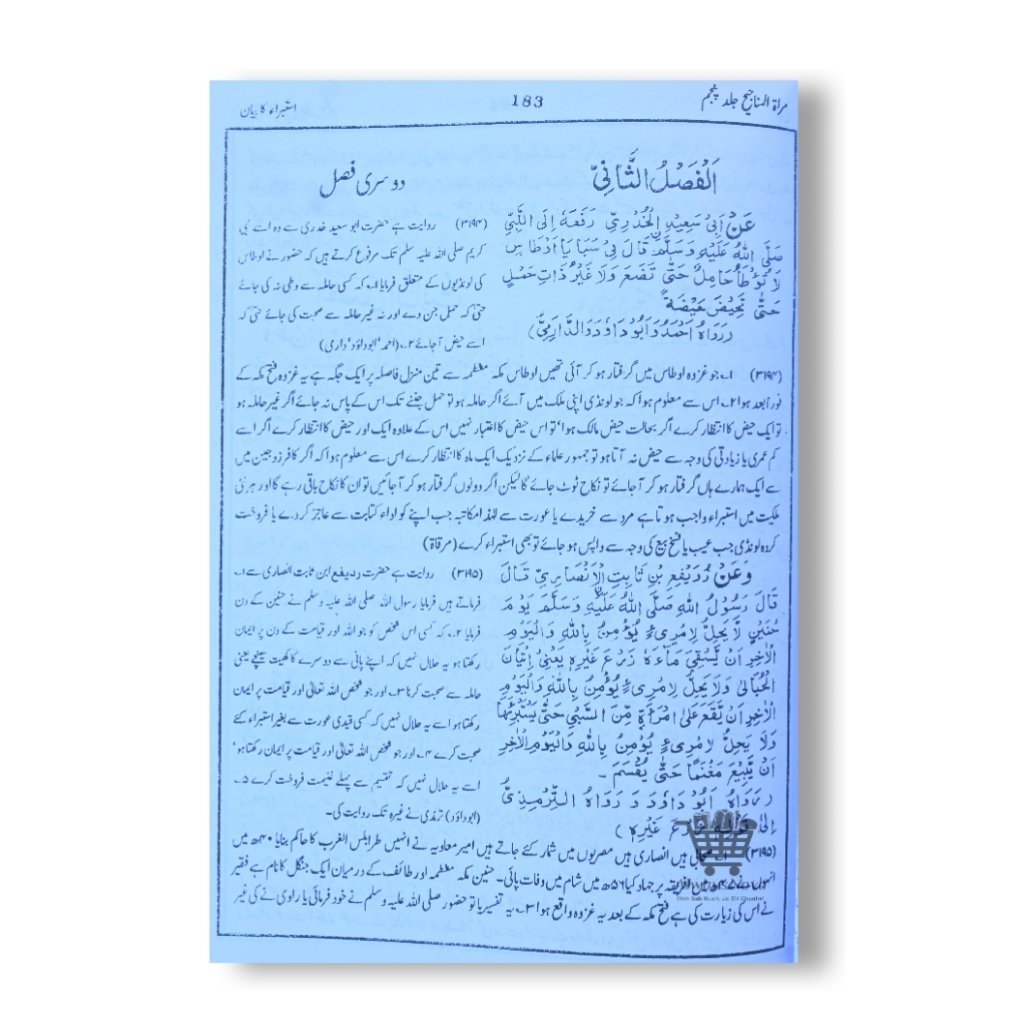 مراۃ المناجیح جلد پنجم
183
استبراء کا بیان
اَلْفَصْلُ الثَّانِیْ
دوسری فصل
عَنْ اَبِیْ سَعِیْدِ الْخُدْرِیِّ رَفَعَهٗ اِلَی النَّبِیِّ
صَلَّی اللهُ عَلَیْهِ وَسَلَّمَ قَالَ فِیْ سَبَایَا اَوْطَاسٍ
لَا تُوْطَأُ حَامِلٌ حَتّٰی تَضَعَ وَلَا غَیْرُ ذَاتِ حَمْلٍ
حَتّٰی تَحِیْضَ حَیْضَةً
(رَوَاهُ اَحْمَدُ وَاَبُوْ دَاوٗدَ وَالدَّارِمِیُّ)
(۳۱۹۴) روایت ہے حضرت ابو سعید خدری سے وہ اسے نبی
کریم صلی اللہ علیہ سلم تک مرفوع کرتے ہیں کہ حضور نے اوطاس
کی لونڈیوں کے متعلق فرمایا ۱؎ کہ کسی حاملہ سے وطی نہ کی جائے
حتیٰ کہ حمل جن دے اور نہ غیر حاملہ سے صحبت کی جائے حتیٰ کہ
اسے حیض آجائے ۲؎ (احمد، ابوداؤد، دارمی)
(۳۱۹۴) ۱؎ جو غزوہ اوطاس میں گرفتار ہو کر آئی تھیں اوطاس مکہ معظمہ سے تین منزل فاصلہ پر ایک جگہ ہے یہ غزوہ فتح مکہ کے
فوراً بعد ہوا ۲؎ اس سے معلوم ہوا کہ جو لونڈی اپنی ملک میں آئے اگر حاملہ ہو تو حمل جننے تک اس کے پاس نہ جائے اگر غیر حاملہ ہو
تو ایک حیض کا انتظار کرے اگر بحالت حیض مالک ہوا، تو اس حیض کا اعتبار نہیں اس کے علاوہ ایک اور حیض کا انتظار کرے اگر اسے
کم عمری یا زیادتی کی وجہ سے حیض نہ آتا ہو تو جمہور علماء کے نزدیک ایک ماہ کا انتظار کرے اس سے معلوم ہوا کہ اگر کافر زوجین میں
سے ایک ہمارے ہاں گرفتار ہو کر آجائے تو نکاح ٹوٹ جائے گا لیکن اگر دونوں گرفتار ہو کر آجائیں تو ان کا نکاح باقی رہے گا اور ہر نئی
ملکیت میں استبراء واجب ہوتا ہے مرد سے خریدے یا عورت سے لہذا مکاتبہ جب اپنے کو اداء کتابت سے عاجز کر دے یا فروخت
کردہ لونڈی جب عیب یا فسخ بیع کی وجہ سے واپس ہو جائے تو بھی استبراء کرے (مرقاۃ)
وَعَنْ رُوَیْفِعِ بْنِ ثَابِتِ الْاَنْصَارِیِّ قَالَ
قَالَ رَسُوْلُ اللهِ صَلَّی اللهُ عَلَیْهِ وَسَلَّمَ یَوْمَ
حُنَیْنٍ لَا یَحِلُّ لِامْرِیءٍ یُؤْمِنُ بِاللهِ وَالْیَوْمِ
الْاٰخِرِ اَنْ یَّسْقِیَ مَآءَهٗ زَرْعَ غَیْرِهٖ یَعْنِیْ اِتْیَانَ
الْحُبَالٰی وَلَا یَحِلُّ لِامْرِیءٍ یُؤْمِنُ بِاللهِ وَالْیَوْمِ
الْاٰخِرِ اَنْ یَّقَعَ عَلٰی امْرَاَةٍ مِّنَ السَّبْیِ حَتّٰی یَسْتَبْرِئَهَا
وَلَا یَحِلُّ لِامْرِیءٍ یُؤْمِنُ بِاللهِ وَالْیَوْمِ الْاٰخِرِ
اَنْ یَّبِیْعَ مَغْنَمًا حَتّٰی یُقْسَمَ ۔
(رَوَاهُ اَبُوْ دَاوٗدَ وَ رَوَاهُ التِّرْمِذِیُّ
اِلٰی قَوْلِهٖ زَرْعَ غَیْرِهٖ)
(۳۱۹۵) روایت ہے حضرت رویفع ابن ثابت انصاری سے ۱؎
فرماتے ہیں فرمایا رسول اللہ صلی اللہ علیہ وسلم نے حنین کے دن
فرمایا ۲؎ کہ کسی اس شخص کو جو اللہ اور قیامت کے دن پر ایمان
رکھتا ہو یہ حلال نہیں کہ اپنے پانی سے دوسرے کا کھیت سینچے یعنی
حاملہ سے صحبت کرنا ۳؎ اور جو شخص اللہ تعالیٰ اور قیامت پر ایمان
رکھتا ہو اسے یہ حلال نہیں کہ کسی قیدی عورت سے بغیر استبراء کئے
صحبت کرے ۴؎ اور جو شخص اللہ تعالیٰ اور قیامت پر ایمان رکھتا ہو،
اسے یہ حلال نہیں کہ تقسیم سے پہلے غنیمت فروخت کرے ۵؎
(ابوداؤد) ترمذی نے غیرہ تک روایت کی۔
(۳۱۹۵) ۱؎ صحابی ہیں انصاری ہیں مصریوں میں شمار کئے جاتے ہیں امیر معاویہ نے انہیں طرابلس الغرب کا حاکم بنایا ۴۰ھ میں
انہوں نے میں افریقہ پر جہاد کیا ۵۶ھ میں شام میں وفات پائی۔ حنین مکہ معظمہ اور طائف کے درمیان ایک جنگل کا نام ہے فقیر
نے اس کی زیارت کی ہے فتح مکہ کے بعد یہ غزوہ واقع ہوا ۳؎ یہ تفسیر یا تو حضور صلی اللہ علیہ وسلم نے خود فرمائی یا راوی نے کی غیر